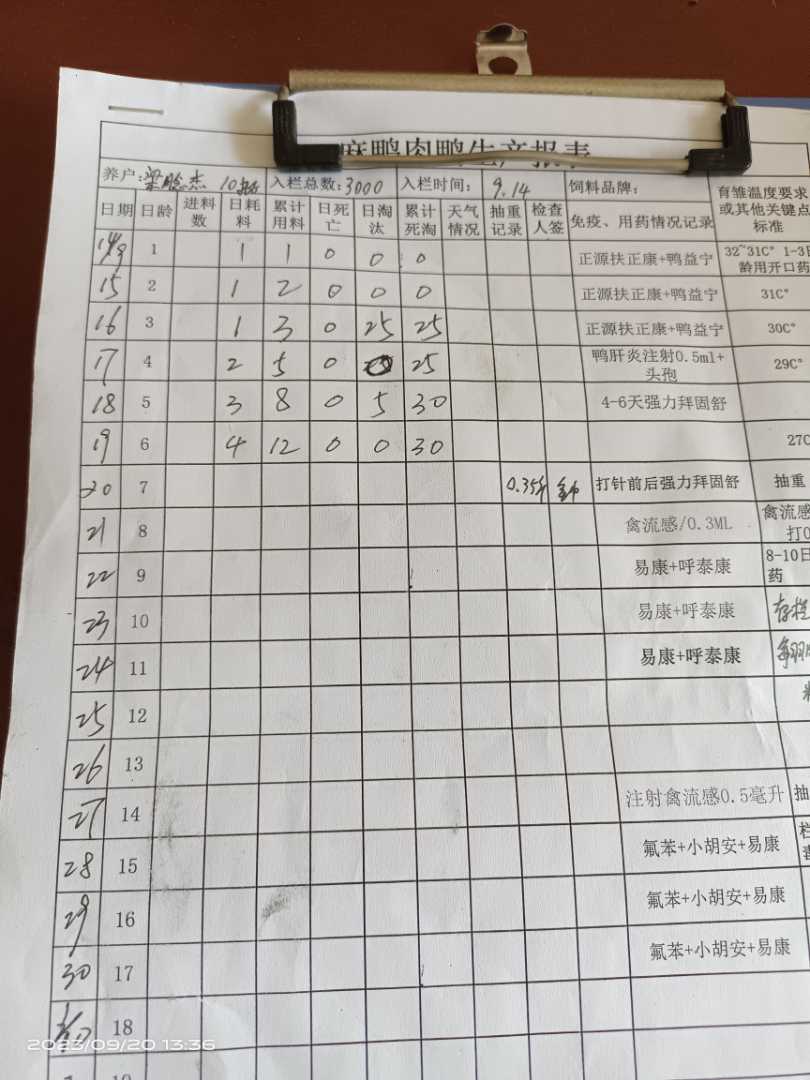 麻鸭肉鸭生产报表
养户: 入栏总数:3000 入栏时间: 9.14 饲料品牌: 育雏温度要求或其他关键点标准
日期 日龄 进料数 日耗料 累计用料 日死亡 日淘汰 累计死淘 天气情况 抽重记录 检查人签 免疫、用药情况记录
1 1 1 0 0 0 正源扶正康+鸭益宁 32~31C° 1-3日龄用开口药
15 2 1 2 0 0 0 正源扶正康+鸭益宁 31C°
16 3 1 3 0 25 25 正源扶正康+鸭益宁 30C°
17 4 2 5 0 25 鸭肝炎注射0.5ml+头孢 29C°
18 5 3 8 0 5 30 4-6天强力拜固舒
19 6 4 12 0 0 30 27C
20 7 0.35斤 打针前后强力拜固舒 抽重
21 8 禽流感/0.3ML 禽流感 打0
22 9 易康+呼泰康 8-10日 药
23 10 易康+呼泰康 存栏
24 11 易康+呼泰康
25 12
26 13
27 14 注射禽流感0.5毫升 抽
28 15 氟苯+小胡安+易康
29 16 氟苯+小胡安+易康
30 17 氟苯+小胡安+易康
18
2023/09/20 13:36